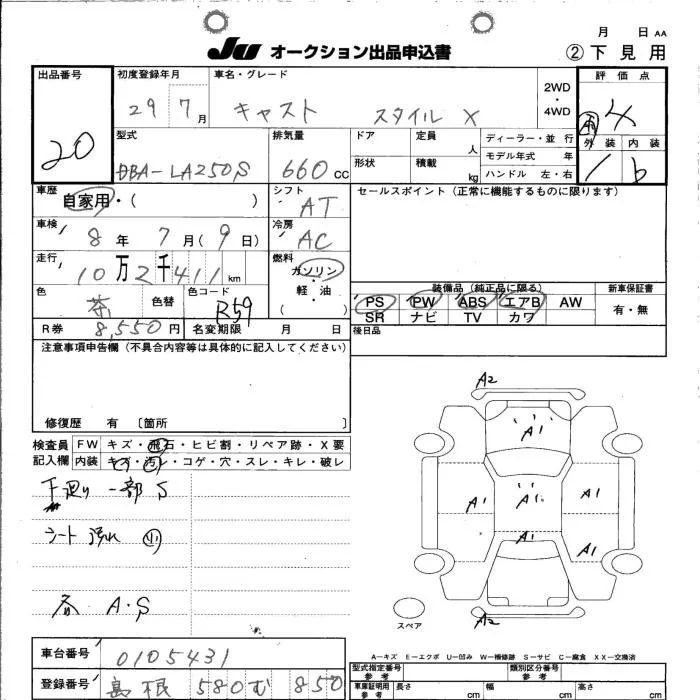 月 日 AA
JU オークション出品申込書
② 下見用
出品番号
20
初度登録年月
29 7月
車名・グレード
キャスト スタイル X
2WD・4WD
評価点
4
外装 内装
1 b
型式
DBA-LA250S
排気量
660 CC
ドア
定員 人
形状
積載 kg
ディーラー・並行
モデル年式 年
ハンドル 左・右
車歴
自家用・( )
シフト
AT
セールスポイント（正常に機能するものに限ります）
車検
8年 7月（9日）
冷房
AC
走行
10万2千411km
燃料
ガソリン・軽油・( )
色
茶
色替
色コード
R59
装備品（純正品に限る）
PS PW ABS エアB AW
SR ナビ TV カワ
新車保証書
有・無
R券 8,550円
名変期限 月 日
後日品
注意事項申告欄（不具合内容等は具体的に記入してください）
修復歴 有 〔箇所 〕
検査員記入欄
FW キズ・飛石・ヒビ割・リペア跡・X要
内装 キズ・汚レ・コゲ・穴・スレ・キレ・破レ
下廻り 一部 S
シート 汚れ 小
各 A・S
A2
A1
A1
A1
A1
A1
A1
A2
スペア
A-キズ E-エクボ U-凹み W-補修跡 S-サビ C-腐食 XX-交換済
車台番号
0105431
登録番号
島根 580 む 850
型式指定番号 参考
類別区分番号 参考
車庫証明用 参考
長さ cm
幅 cm
高さ cm